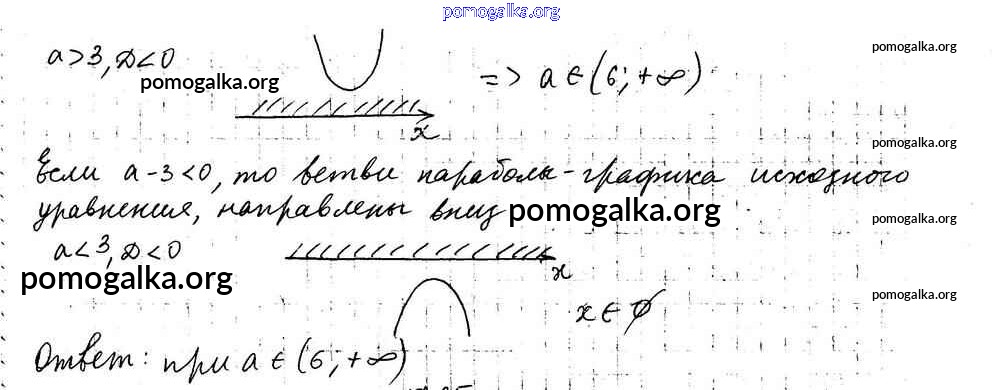 pomogalka.org
a>3, D<0
pomogalka.org
x
=> a∈(6; +∞)
pomogalka.org
pomogalka.org
Если а-3<0, то ветви параболы-графика исходного
уравнения, направлены вниз pomogalka.org
pomogalka.org
a<3, D<0
x
pomogalka.org
x∈∅
pomogalka.org
Ответ: при a∈(6; +∞)